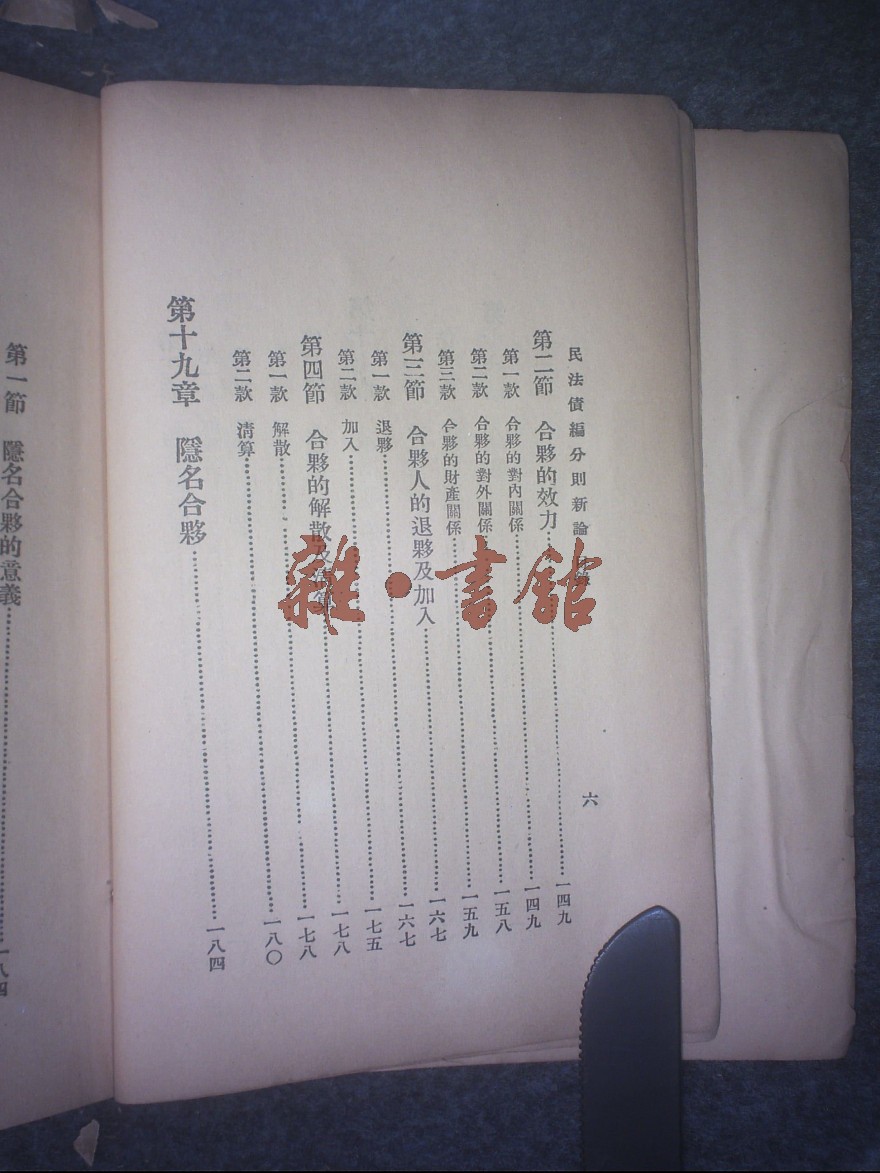 民法債編分則新論 目錄 六
第二節 合夥的效力……一四九
第一款 合夥的對內關係……一四九
第二款 合夥的對外關係……一五八
第三款 合夥的財產關係……一五九
第三節 合夥人的退夥及加入……一六七
第一款 退夥……一六七
第二款 加入……一七五
第四節 合夥的解散及清算……一七八
第一款 解散……一七八
第二款 清算……一八〇
第十九章 隱名合夥……一八四
第一節 隱名合夥的意義……一八四
雜·書館